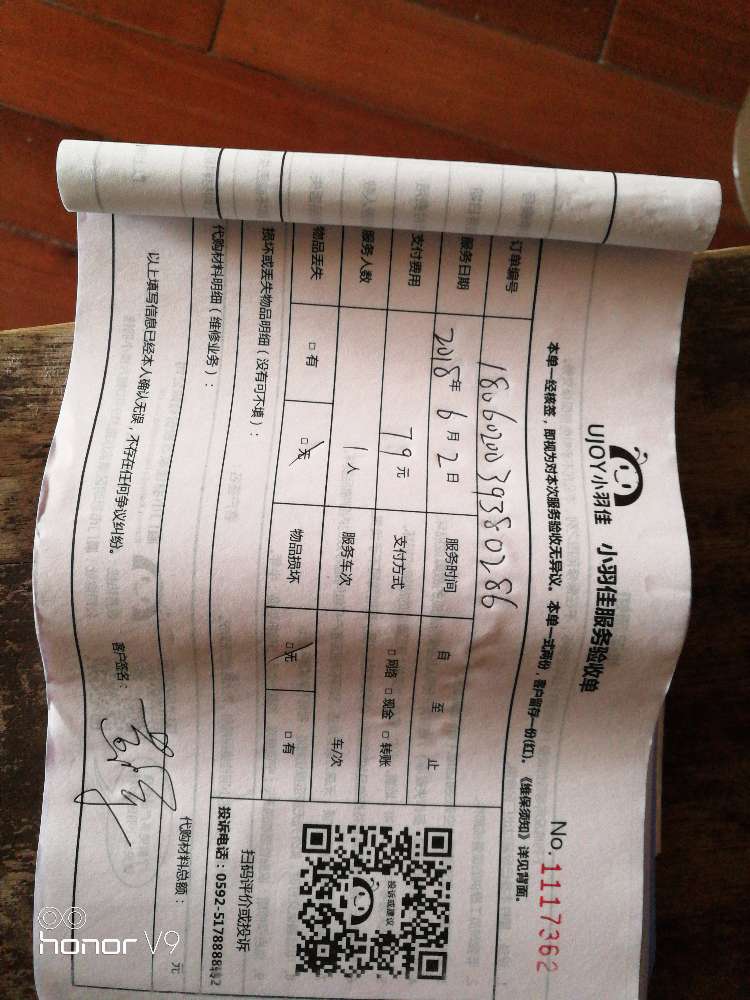 UJOY小羽佳 小羽佳服务验收单
No. 1117362
本单一经核签，即视为对本次服务验收无异议。本单一式两份，客户留存一份(红)。《维保须知》详见背面。
订单编号 1806020039380286
服务日期 2018年 6月 2日 服务时间 自 至 止
支付费用 79元 支付方式 □网络 □现金 □转账
服务人数 1人 服务车次 车/次
物品丢失 □有 □无 物品损坏 □无 □有
损坏或丢失物品明细（没有可不填）：
代购材料明细（维修业务）：
代购材料总额： 元
投诉或建议
扫码评价或投诉
投诉电话：0592-5178888
以上填写信息已经本人确认无误，不存在任何争议纠纷。
客户签名：
honor V9